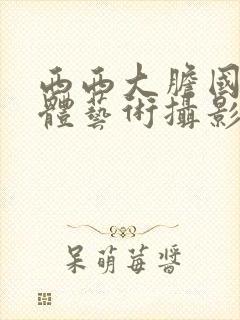 西西大膽國
體藝術攝影
呆萌莓醬